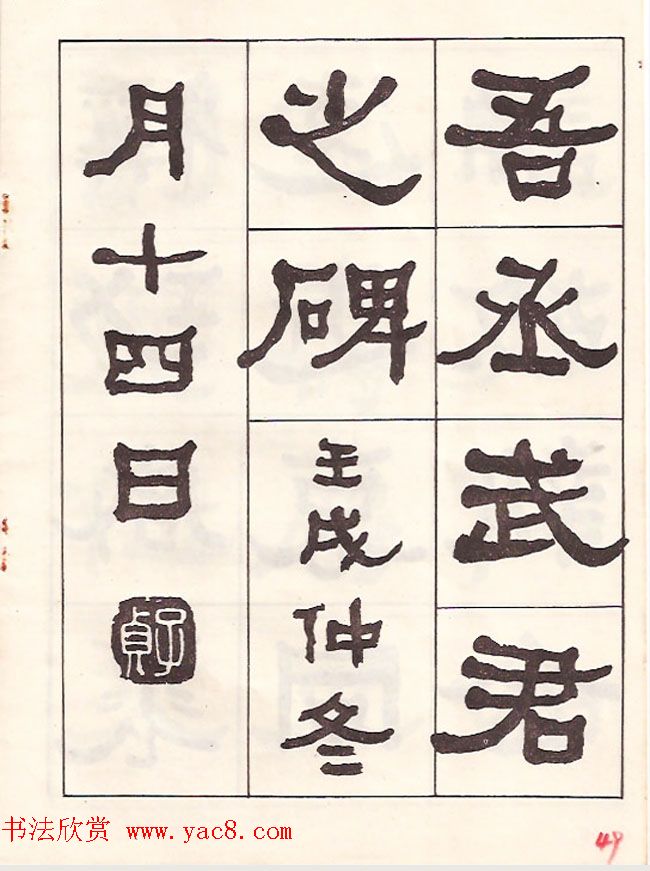 吾丞武君
之碑壬戌仲冬
月十四日
子貞
书法欣赏 www.yac8.com
49